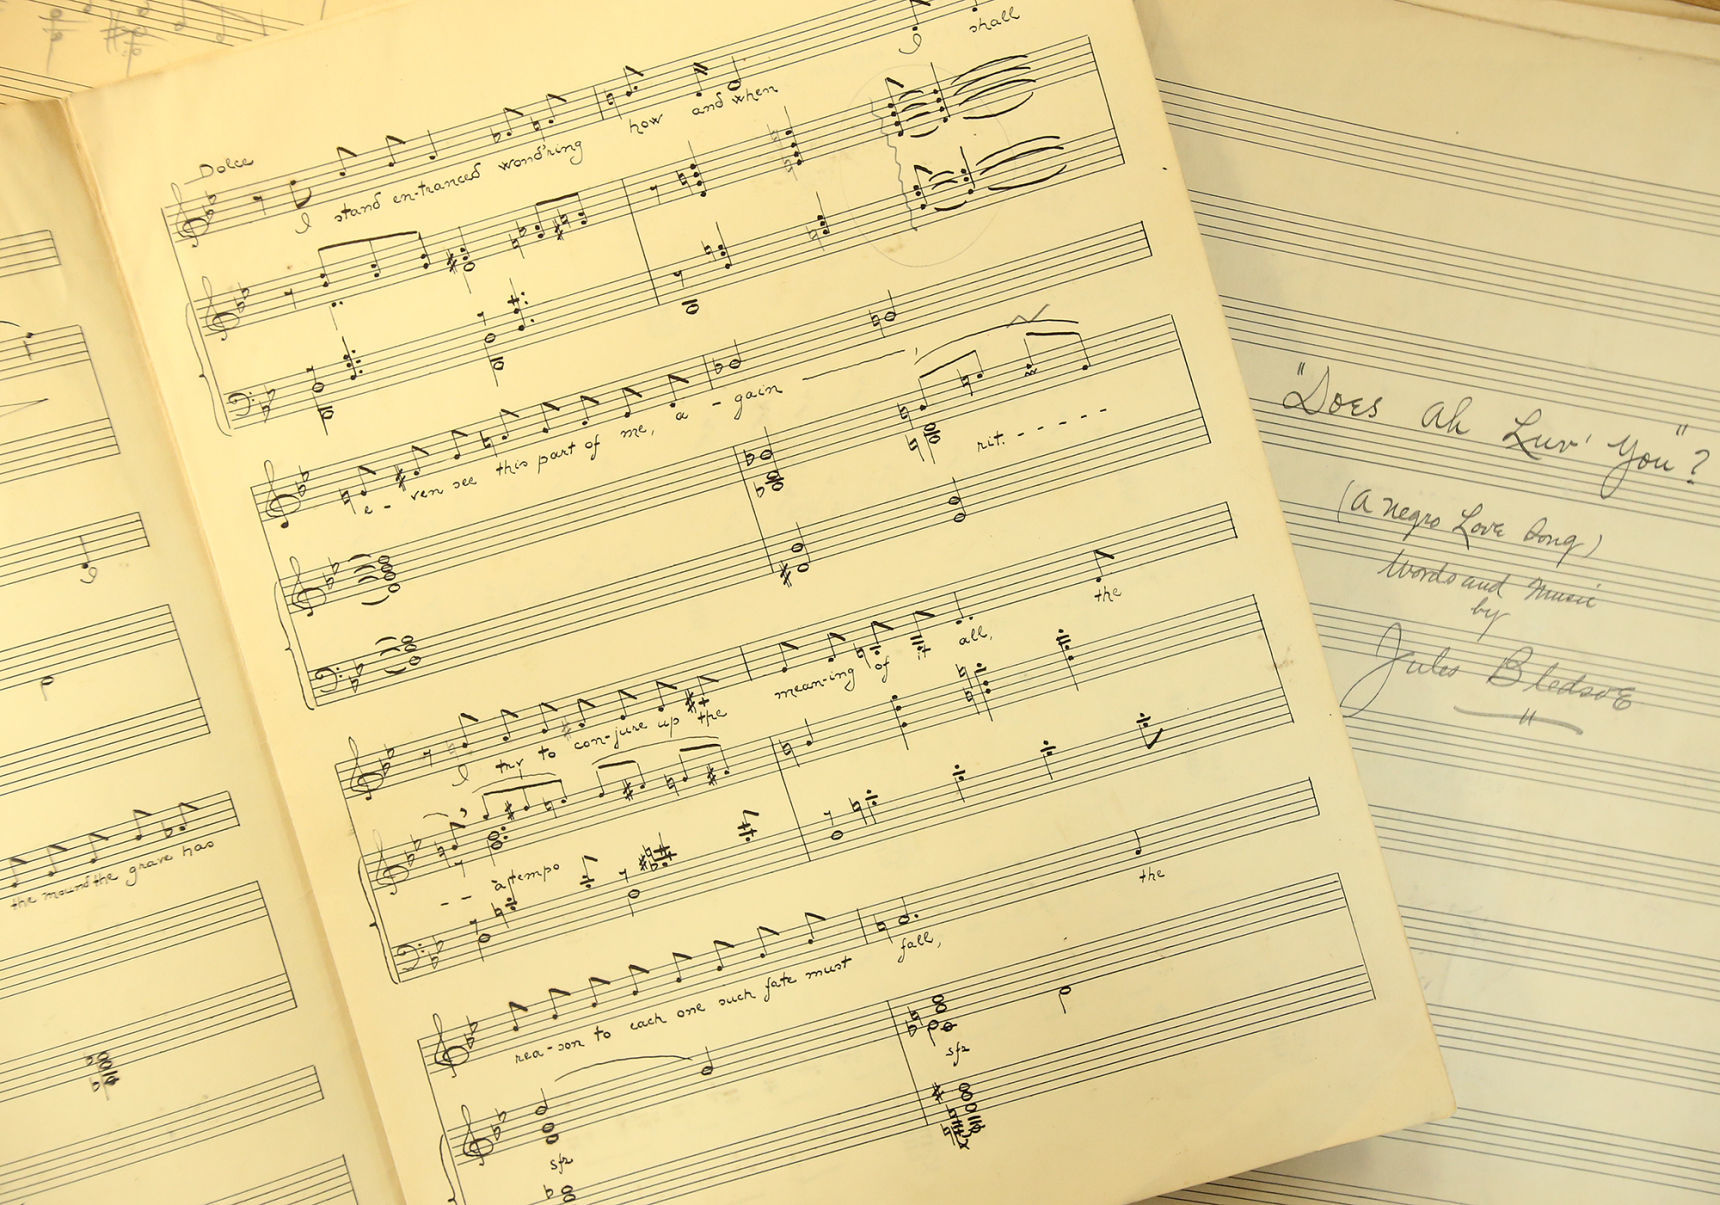 the mound the grave has
Dolce
I stand en-tranced wond'ring how and when I shall
e-ven see this part of me, a-gain
rit. - - - -
I try to con-jure up the mean-ing of it all, the
- - a tempo
rea-son to each one such fate must fall, the
sfz
sfz
"Does Ah Luv' You"?
(A Negro Love Song)
Words and Music
by
Jules Bledsoe